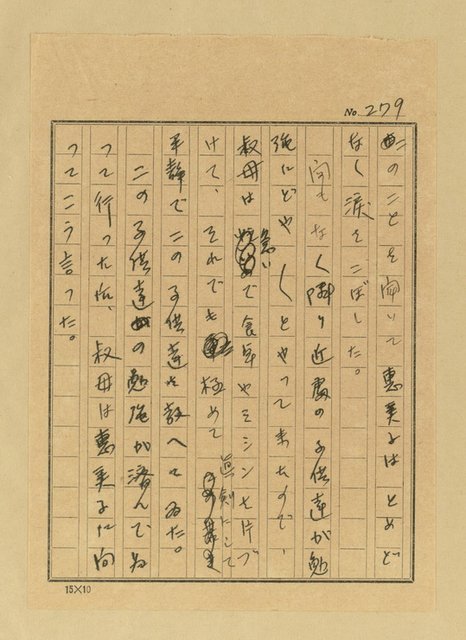 No. 279
のことを聞いて恵美子はとめど
なく涙をこぼした。
間もなく隣り近處の子供達が勉
強にどやどやとやって来たので、
叔母は急いで食卓やミシンを片づ
けて、それでも極めて真剣にして
平静で二の子供達を教へてゐた。
二の子供達の勉強が済んで帰
って行った后、叔母は恵美子に向
ってこう言った。
15×10